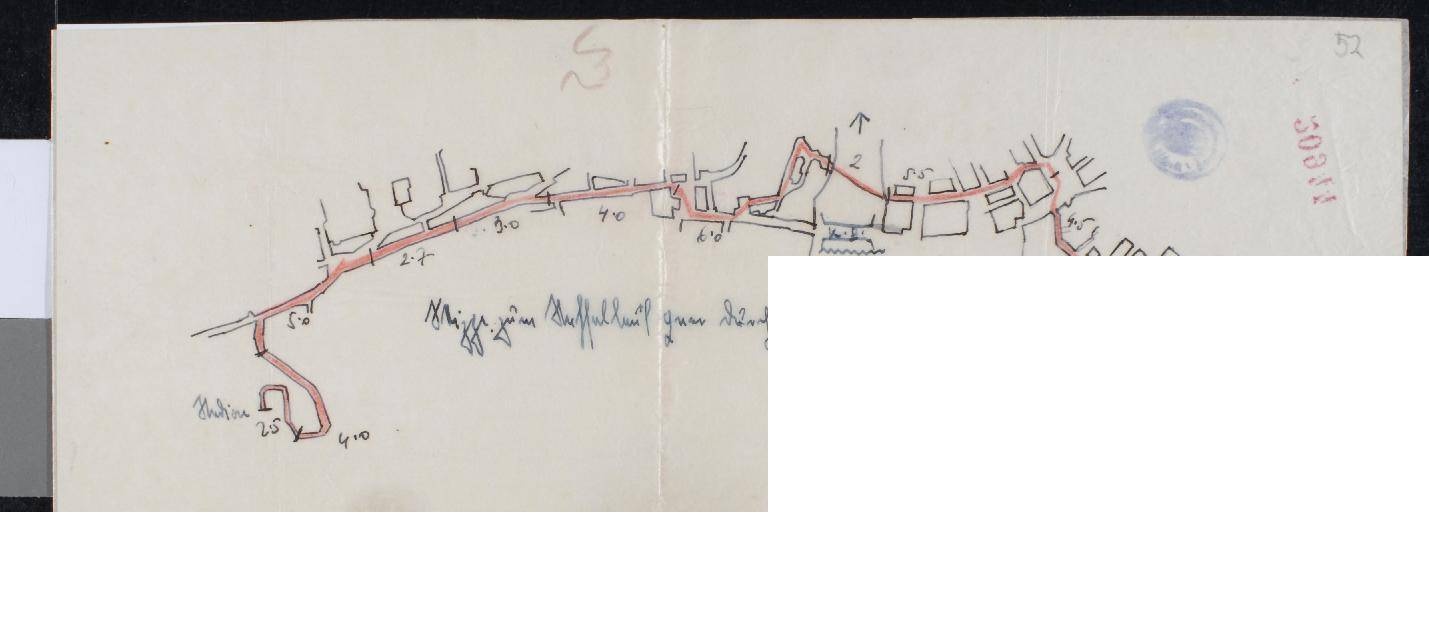 52
30811
2
5·5
4·5
4·0
3·0
6·0
2·7
5·0
Skizze zum Staffellauf quer durch
Stadion
2·5
4·0